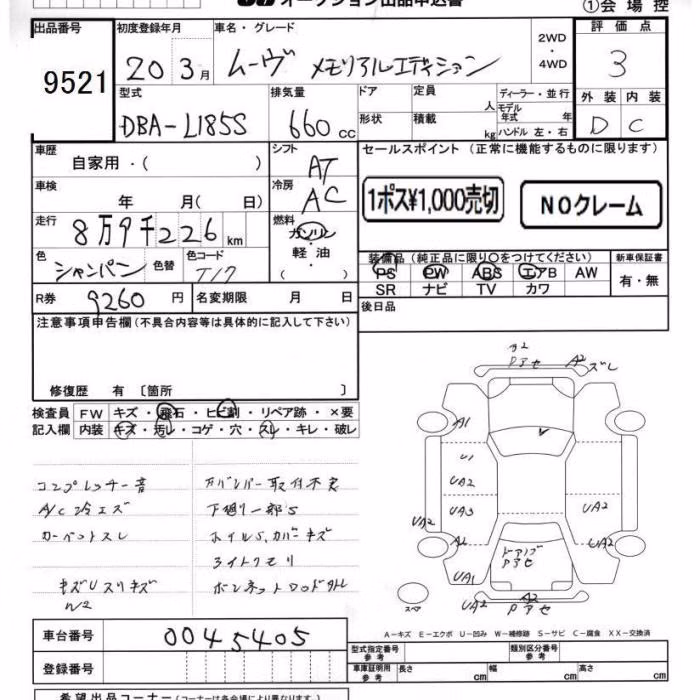 オークション出品申込書
①会場控
出品番号 初度登録年月 車名・グレード 評価点
9521 20 3月 ムーヴ メモリアルエディション 2WD・4WD 3
型式 排気量 ドア 定員 ディーラー・並行 外装 内装
DBA-L185S 660cc 人 モデル年式 年 D C
形状 積載 kg ハンドル 左・右
車歴 シフト セールスポイント (正常に機能するものに限ります)
自家用・( ) AT
車検 冷房 1ポス¥1,000売切 NOクレーム
年 月( 日) AC
走行 燃料
8万9千226km ガソリン・軽油・( )
色 色替 色コード 装備品 (純正品に限り○をつけてください) 新車保証書
シャンパン T17 PS PW ABS エアB AW 有・無
SR ナビ TV カワ
R券 9260円 名変期限 月 日 後日品
注意事項申告欄(不具合内容等は具体的に記入して下さい)
修復歴 有 〔箇所 〕
検査員 FW キズ・飛石・ヒビ割・リペア跡・×要
記入欄 内装 キズ・汚レ・コゲ・穴・スレ・キレ・破レ
コンプレッサー音 Fバンパー取付不良
A/C冷エズ 下廻り一部S
カーペットスレ ホイルS、カバーキズ
ライトクモリ
キズUスリキズ
W2
A2
Pアセ A2 ズレ
A1
U1
UA2
UA3 UA2
UA2
A2 UA2
Pアセ
UA1
UA2 A2
スペア Pアセ
A-キズ E-エクボ U-凹み W-補修跡 S-サビ C-腐食 XX-交換済
車台番号 0045405
登録番号
型式指定番号 参考 類別区分番号 参考
車庫証明用 参考 長さ cm 幅 cm 高さ cm
希望出品コーナー(コーナーは各会場により異なります。)